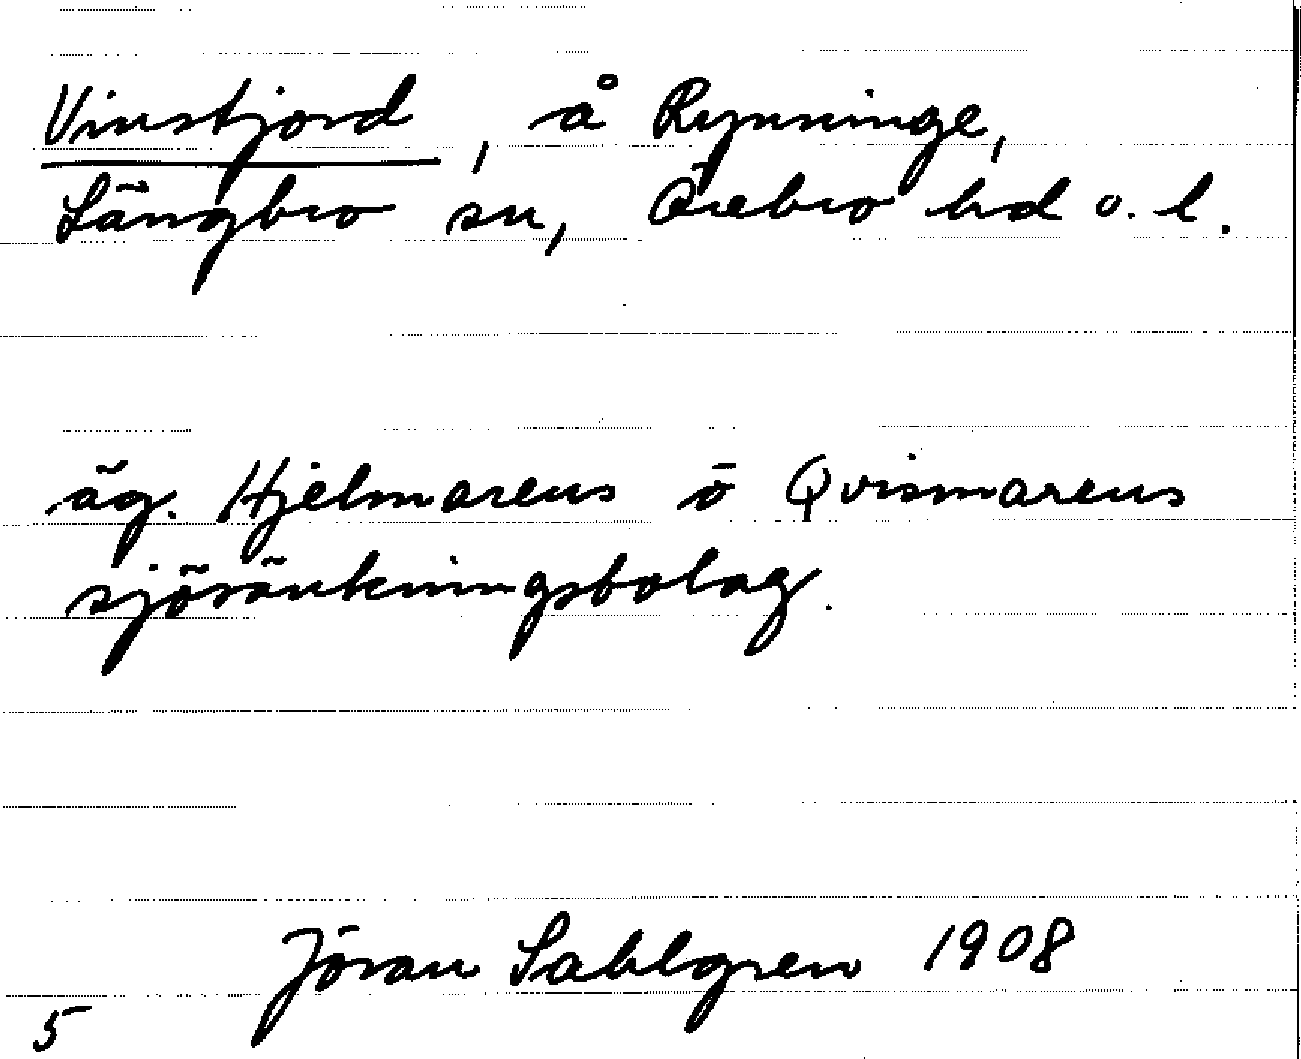 Vinstjord, å Rynninge,
Längbro sn, Örebro hd o. l.
äg. Hjelmarens o Qvismarens
sjösänkningsbolag.
Jöran Sahlgren 1908
5